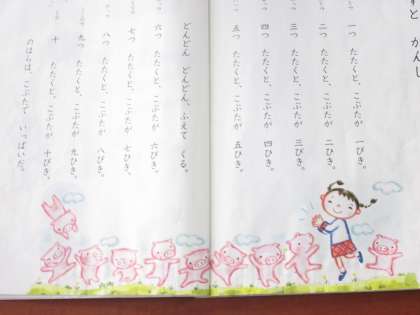 ずと かんじ
一つ たたくと、こぶたが 一ぴき。
二つ たたくと、こぶたが 二ひき。
三つ たたくと、こぶたが 三びき。
四つ たたくと、こぶたが 四ひき。
五つ たたくと、こぶたが 五ひき。
どんどん どんどん、ふえて くる。
六つ たたくと、こぶたが 六ぴき。
七つ たたくと、こぶたが 七ひき。
八つ たたくと、こぶたが 八ぴき。
九つ たたくと、こぶたが 九ひき。
十 たたくと、こぶたが 十ぴき。
のはらは、こぶたで いっぱいだ。